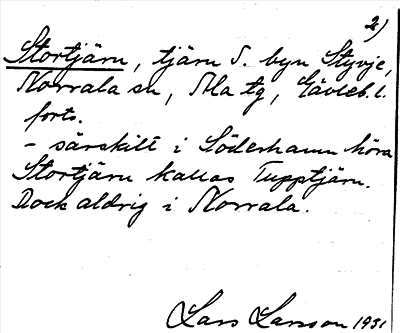 2)
Stortjärn, tjärn S. byn Styvje,
Norrala sn, Ala tg, Gävleb. l.
forts.
- särskilt i Söderhamn höra
Stortjärn kallas Tupptjärn.
Dock aldrig i Norrala.
Lars Larsson 1931